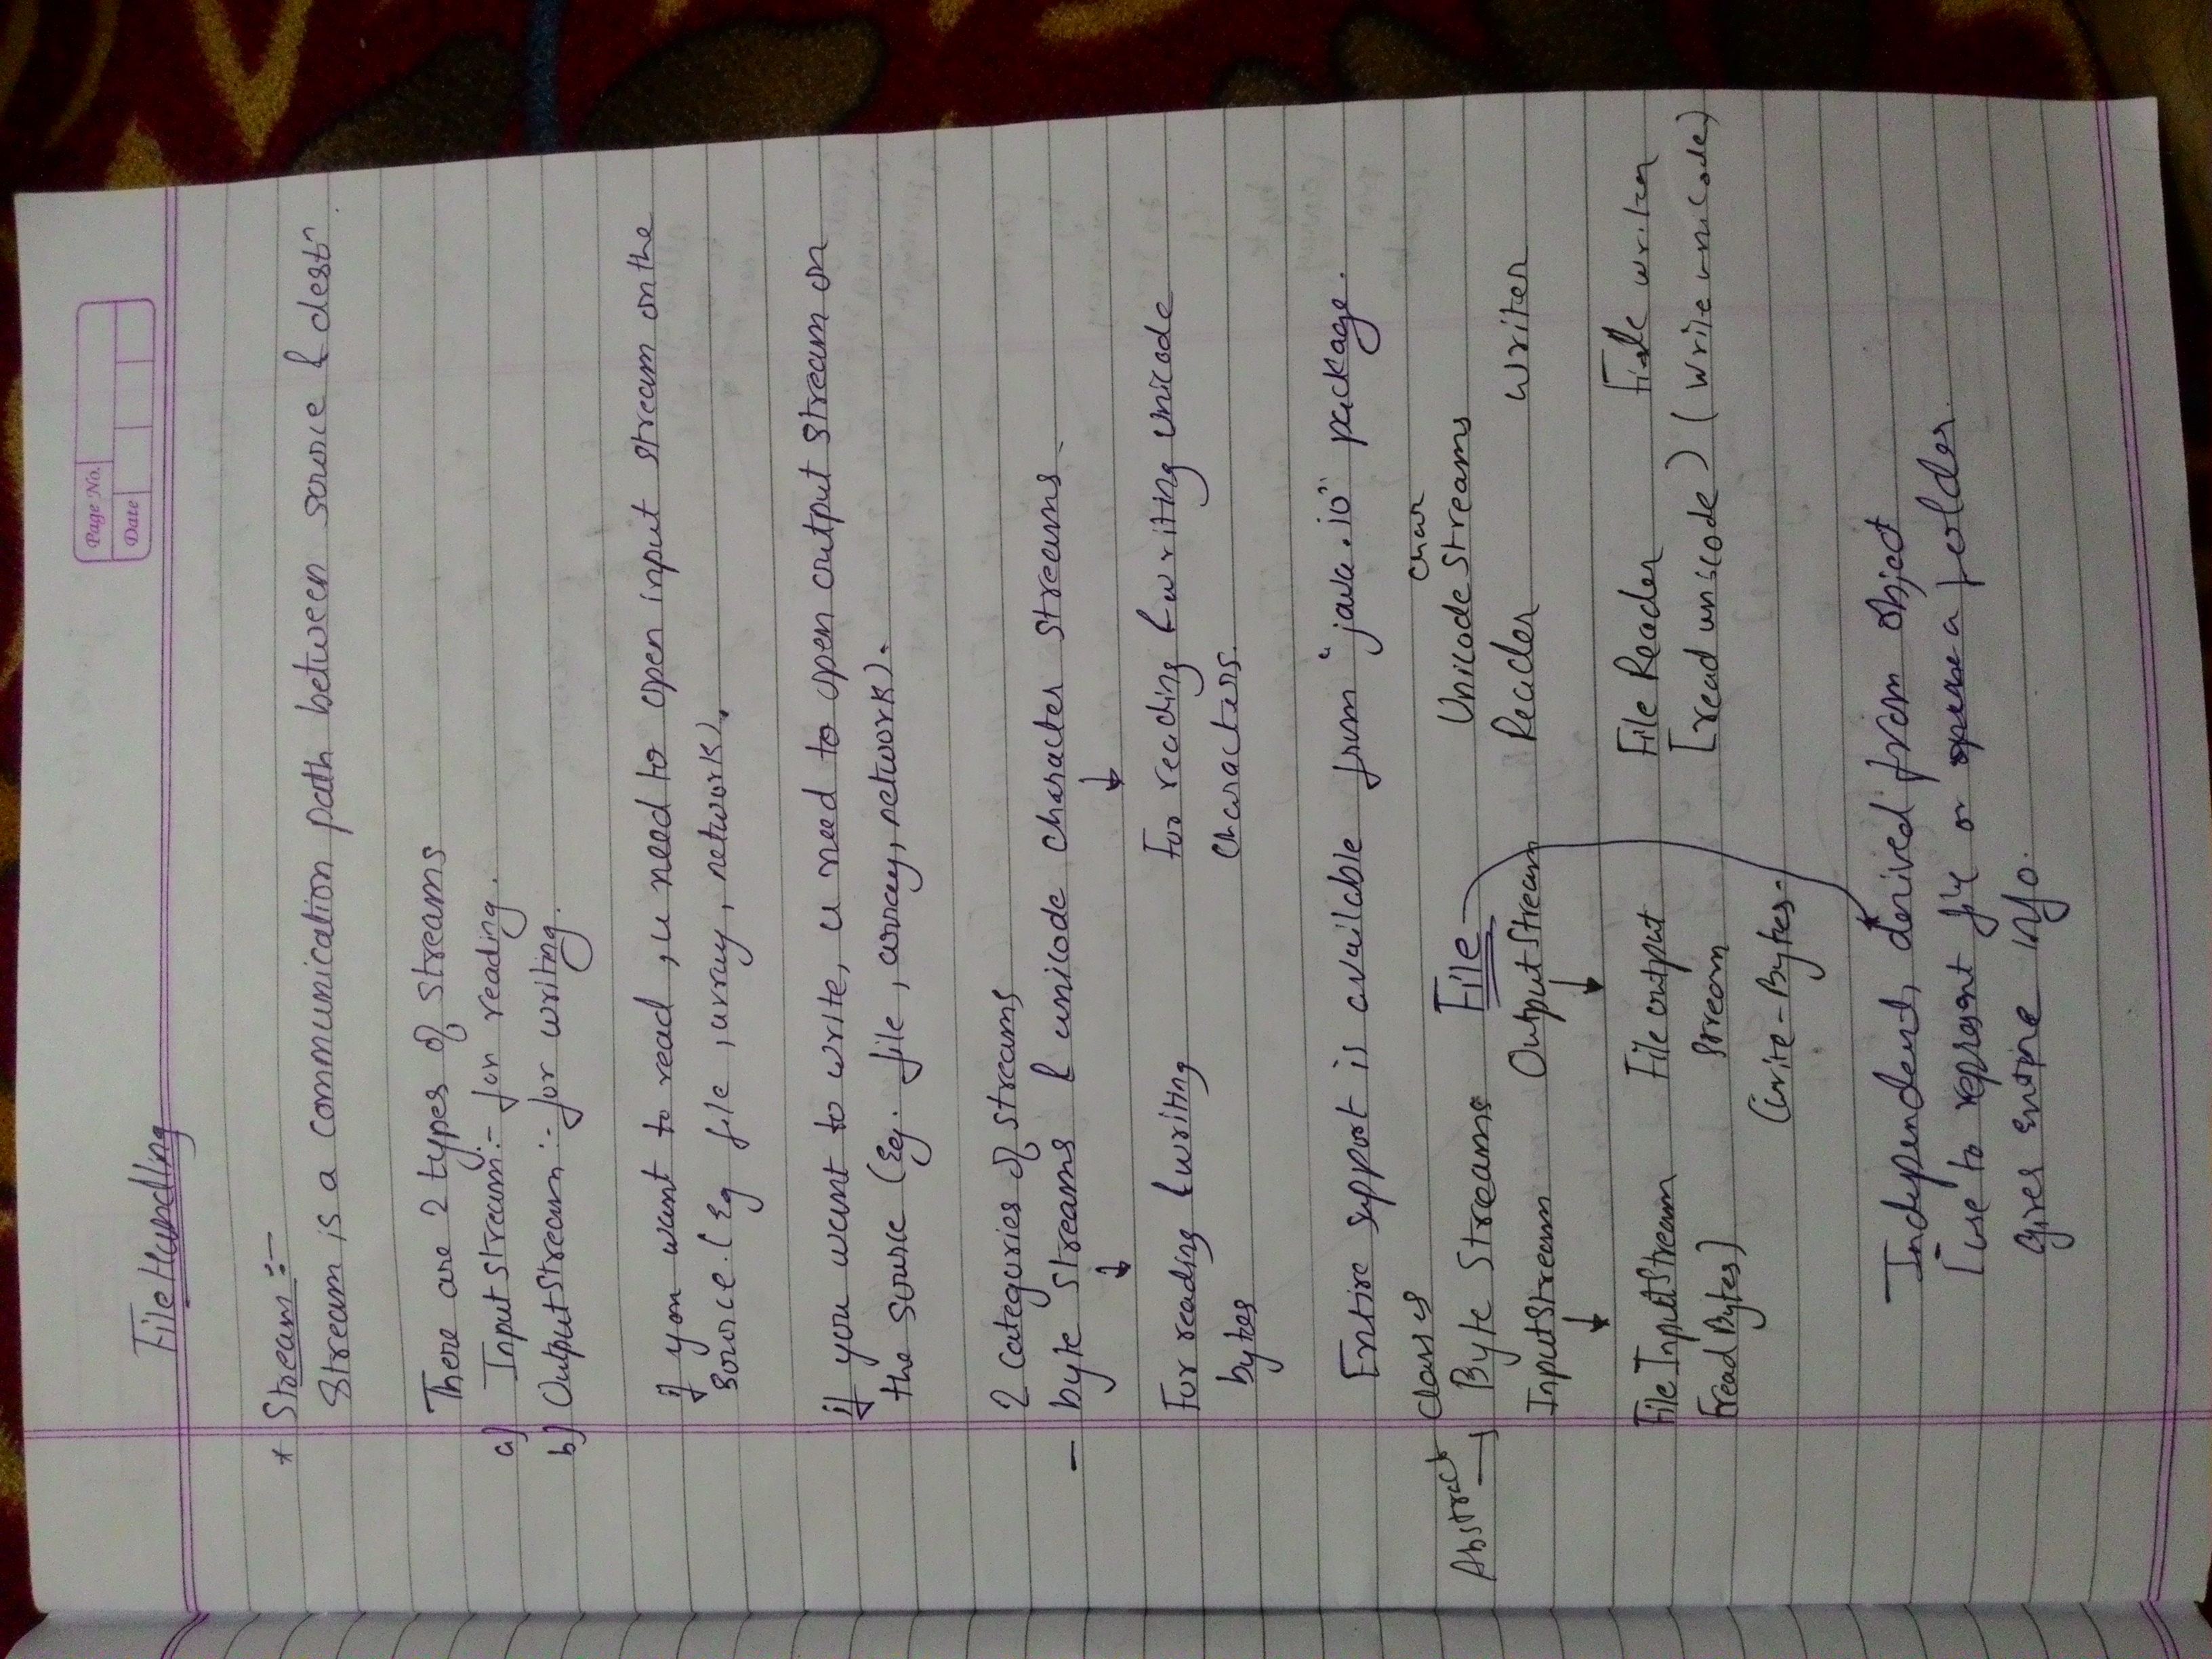 Page No.
Date
File Handling
* Stream :-
Stream is a communication path between source & destn.
There are 2 types of streams
a) Input Stream :- for reading.
b) Output Stream :- for writing.
if you want to read, u need to open input stream on the
source. (Eg file, array, network).
if you want to write, u need to open output stream on
the source (Eg. file, array, network).
2 categories of streams
- byte streams & unicode character streams
↓ ↓
For reading & writing For reading & writing unicode
bytes characters.
Entire support is available from "java.io" package.
Abstract classes char
→ Byte Streams File Unicode Streams
InputStream OutputStream Reader Writer
↓ ↓
File InputStream File output File Reader File writer
[read Bytes] stream [read unicode) (write unicode)
(write-Bytes-
Independent, derived from object
[use to represent file or a folder.
gives entire info.